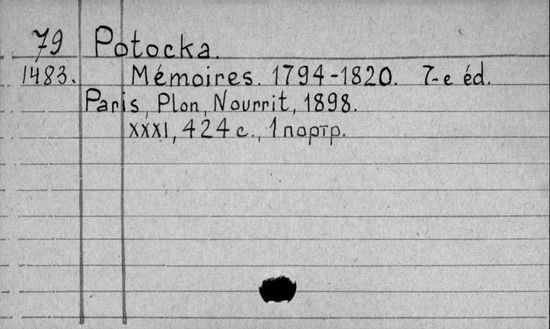 79 Potocka.
1483. Mémoires. 1794-1820. 7-e éd.
Paris, Plon, Nourrit, 1898.
XXXI, 424 с., 1 портр.